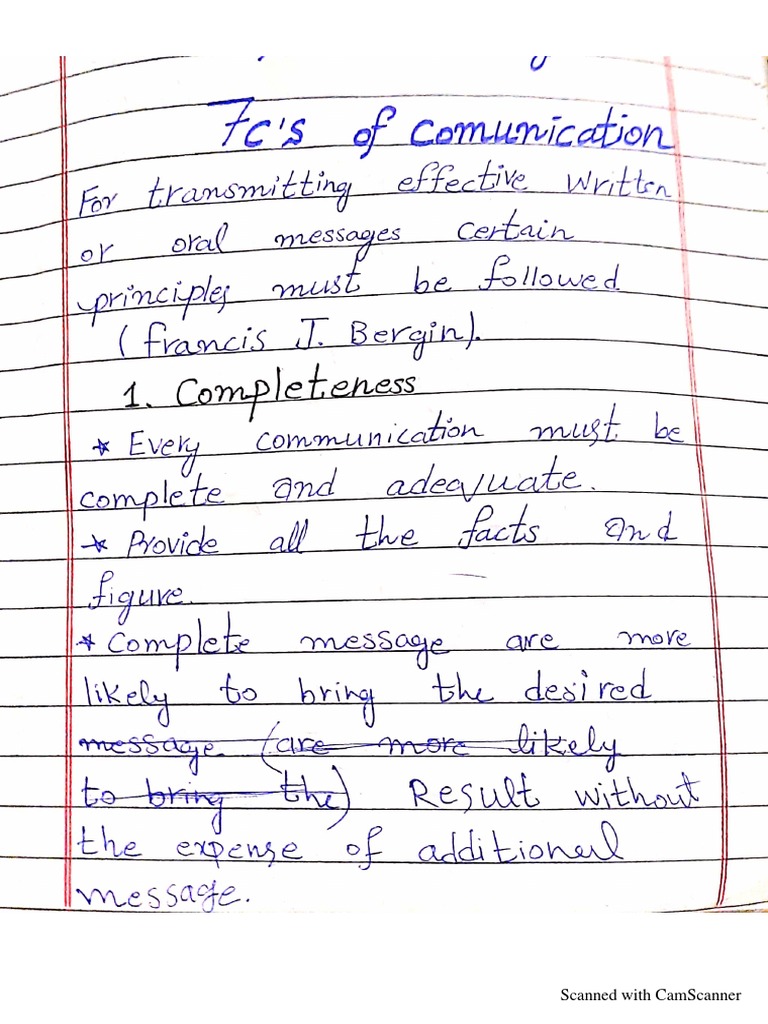 7c's of comunication
For transmitting effective written
or oral messages certain
principles must be followed
(Francis J. Bergin).
1. Completeness
* Every communication must be
complete and adequate.
* Provide all the facts and
figure.
* Complete message are more
likely to bring the desired
message (are more likely
to bring the) Result without
the expense of additional
message.
Scanned with CamScanner